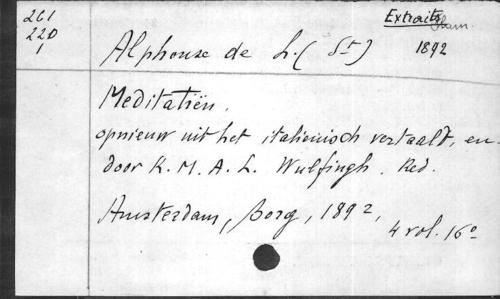 261
220
1
Extraits
1892
Alphonse de L. (St)
Meditatiën.
opnieuw uit het italienisch vertaald, en
door K. M. A. L. Wulfingh. Red.
Amsterdam, Borg, 1892,
4 vol. 16°